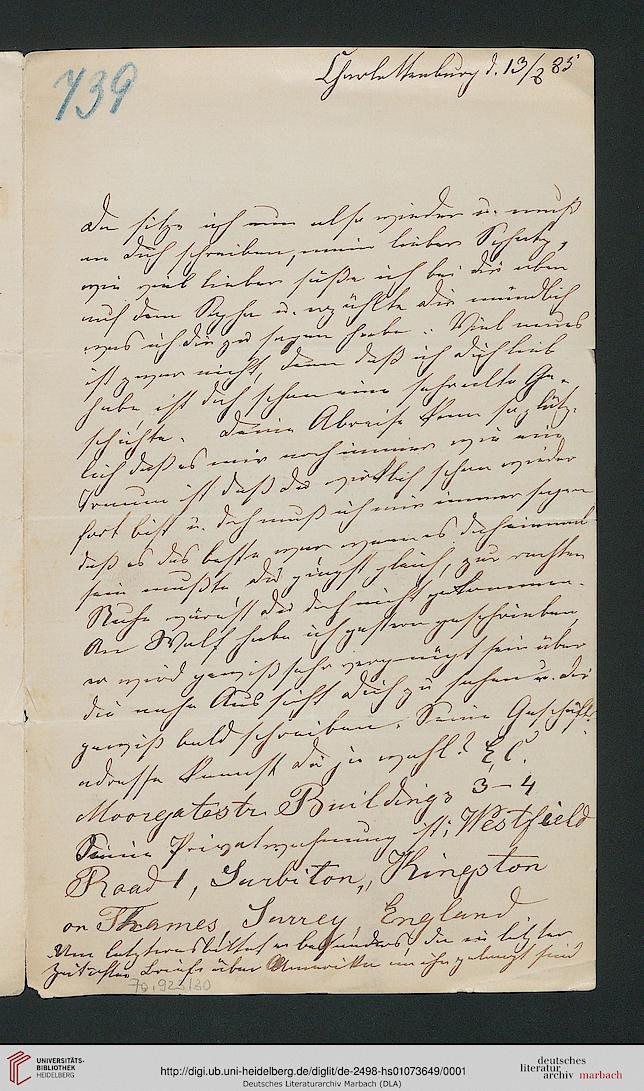 739
Charlottenburg d. 13/8 85
Da sitze ich nun also wieder u. muß
an Dich schreiben, mein lieber Schatz,
wie viel lieber säße ich bei Dir oben
auf dem u. erzählte Dir mündlich
was ich Dir zu sagen habe. Viel neues
ist zwar nicht, denn daß ich Dich lieb
habe ist doch schon eine uralte Ge-
schichte. Deine Abreise kam so plötz-
lich daß es mir noch immer wie ein
Traum ist daß Du wirklich schon wieder
fort bist u. doch muß ich mir immer sagen
daß es das beste war wenn es doch einmal
sein mußte Du gingst gleich, zur rechten
Ruhe wärest Du doch nicht gekommen.
An Wulf habe ich gestern geschrieben,
er wird gewiß sehr vergnügt sein über
die nahe Aussicht Dich zu sehen u. Dir
gewiß bald schreiben. Seine Geschäfts-
adresse kennst Du ja wohl? E. C.
Moorgatestr. Buildings 3-4
Seine Privatwohnung ist: Westfield
Road 1, Surbiton, Kingston
on Thames, Surrey, England
Um letzteres bittet er besonders, da in letzter
Zeit Briefe über Amerika an ihn gelangt sind
70.923/30
UNIVERSITÄTS-
BIBLIOTHEK
HEIDELBERG
http://digi.ub.uni-heidelberg.de/diglit/de-2498-hs01073649/0001
Deutsches Literaturarchiv Marbach (DLA)
deutsches
literatur
archiv marbach